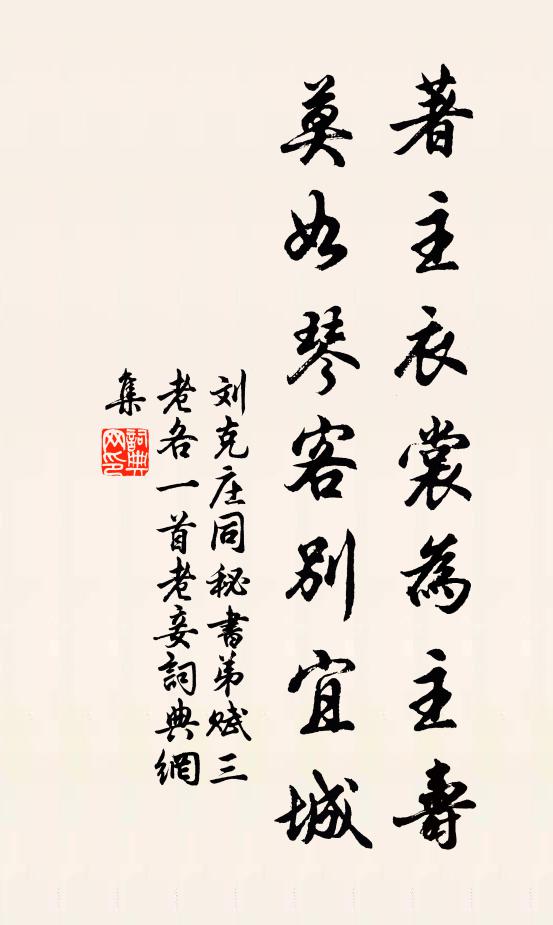 著主衣裳為主壽
莫如琴客別宜城
刘克庄同秘書弟賦三
老各一首老妾詞典網
集
詞典網印